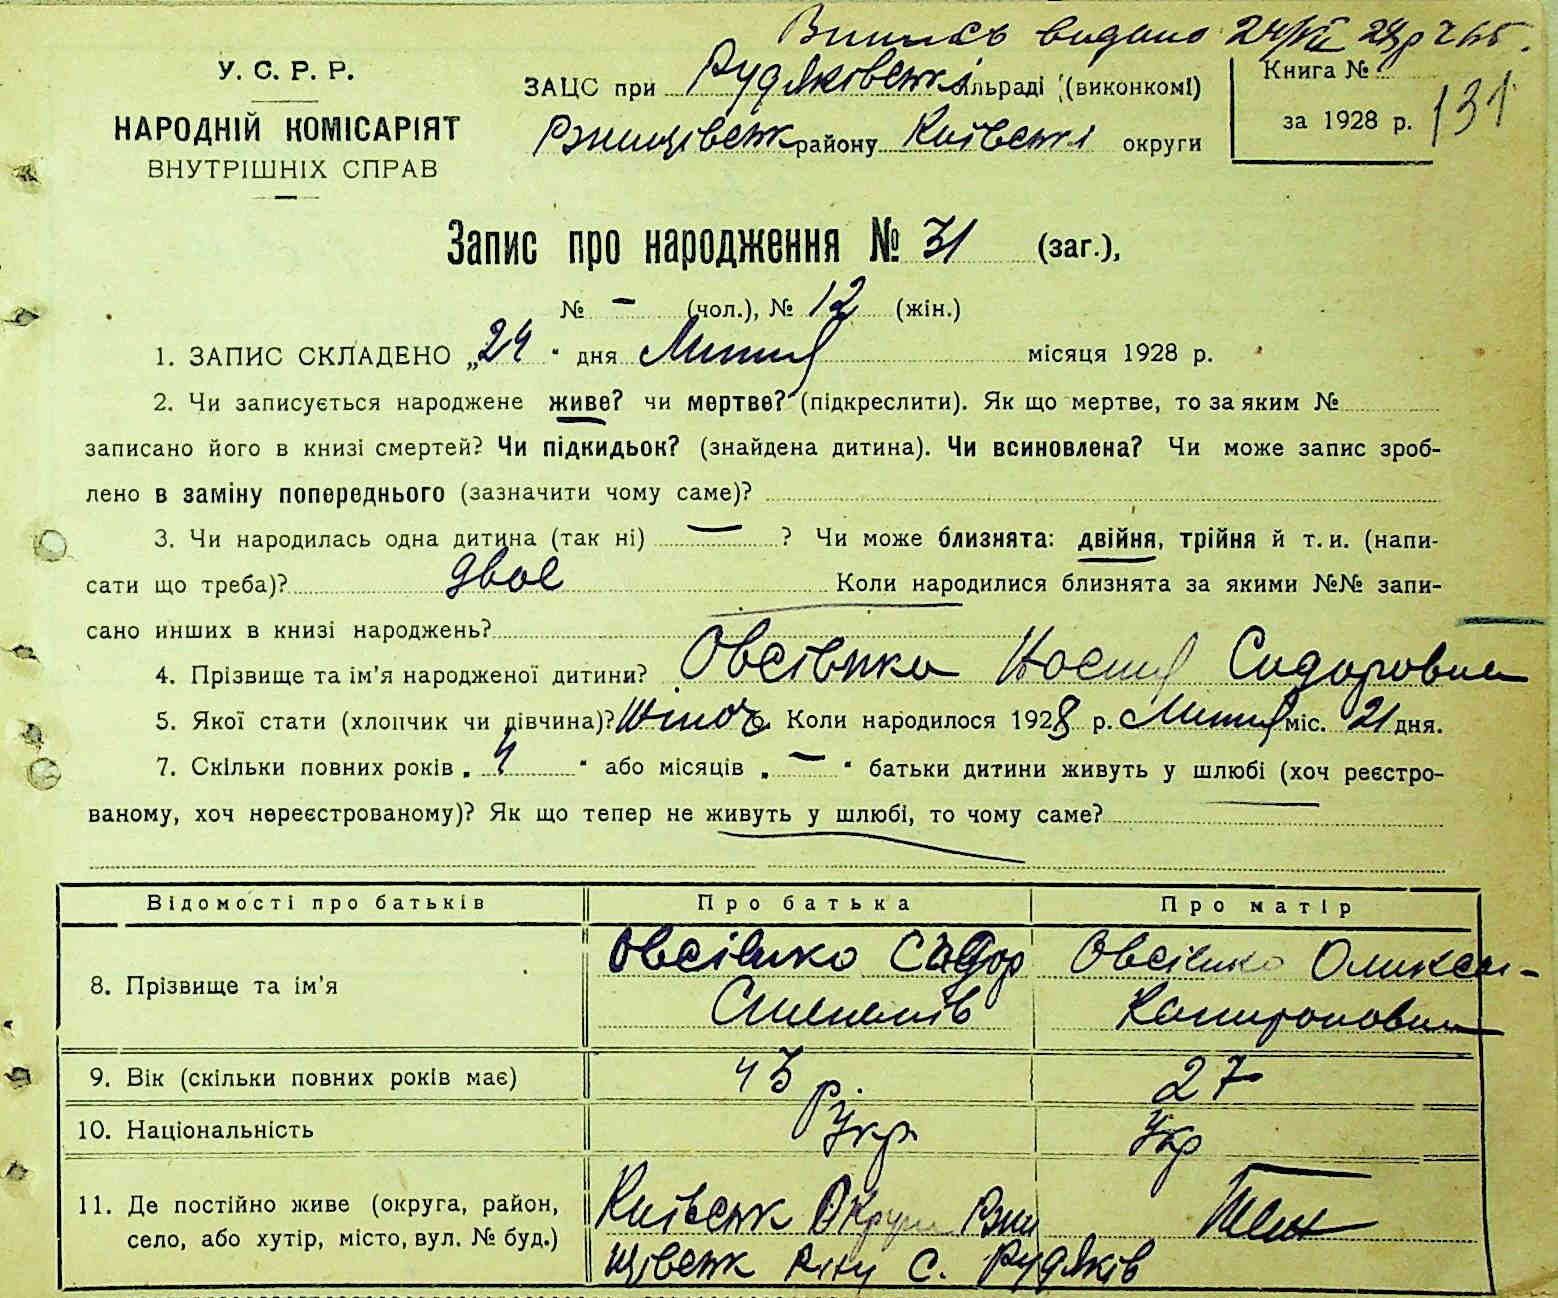 Випись видано 24/VII 28 р
У. С. Р. Р.
НАРОДНІЙ КОМІСАРІЯТ
ВНУТРІШНІХ СПРАВ
ЗАЦС при Рудяківській сільраді (виконкомі)
Ржищівськ району Київської округи
Книга №
за 1928 р. 131
Запис про народження № 31 (заг.),
№ — (чол.), № 12 (жін.)
1. ЗАПИС СКЛАДЕНО „24“ дня Липня місяця 1928 р.
2. Чи записується народжене живе? чи мертве? (підкреслити). Як що мертве, то за яким №
записано його в книзі смертей? Чи підкидьок? (знайдена дитина). Чи всиновлена? Чи може запис зроб-
лено в заміну попереднього (зазначити чому саме)?
3. Чи народилась одна дитина (так ні) — ? Чи може близнята: двійня, трійня й т. и. (напи-
сати що треба)? двоє Коли народилися близнята за якими №№ запи-
сано инших в книзі народжень?
4. Прізвище та ім’я народженої дитини? Овсієнко Сидорович
5. Якої стати (хлопчик чи дівчина)? Коли народилося 1928 р. Липня міс. 21 дня.
7. Скільки повних років „4“ або місяців „—“ батьки дитини живуть у шлюбі (хоч реєстро-
ваному, хоч нереєстрованому)? Як що тепер не живуть у шлюбі, то чому саме?
Відомості про батьків Про батька Про матір
8. Прізвище та ім’я Овсієнко Сидор Овсієнко
9. Вік (скільки повних років має) 43 р. 27
10. Національність Укр Укр
11. Де постійно живе (округа, район,
село, або хутір, місто, вул. № буд.)
Київськ Округи Ржи
щівськ с. Рудяків